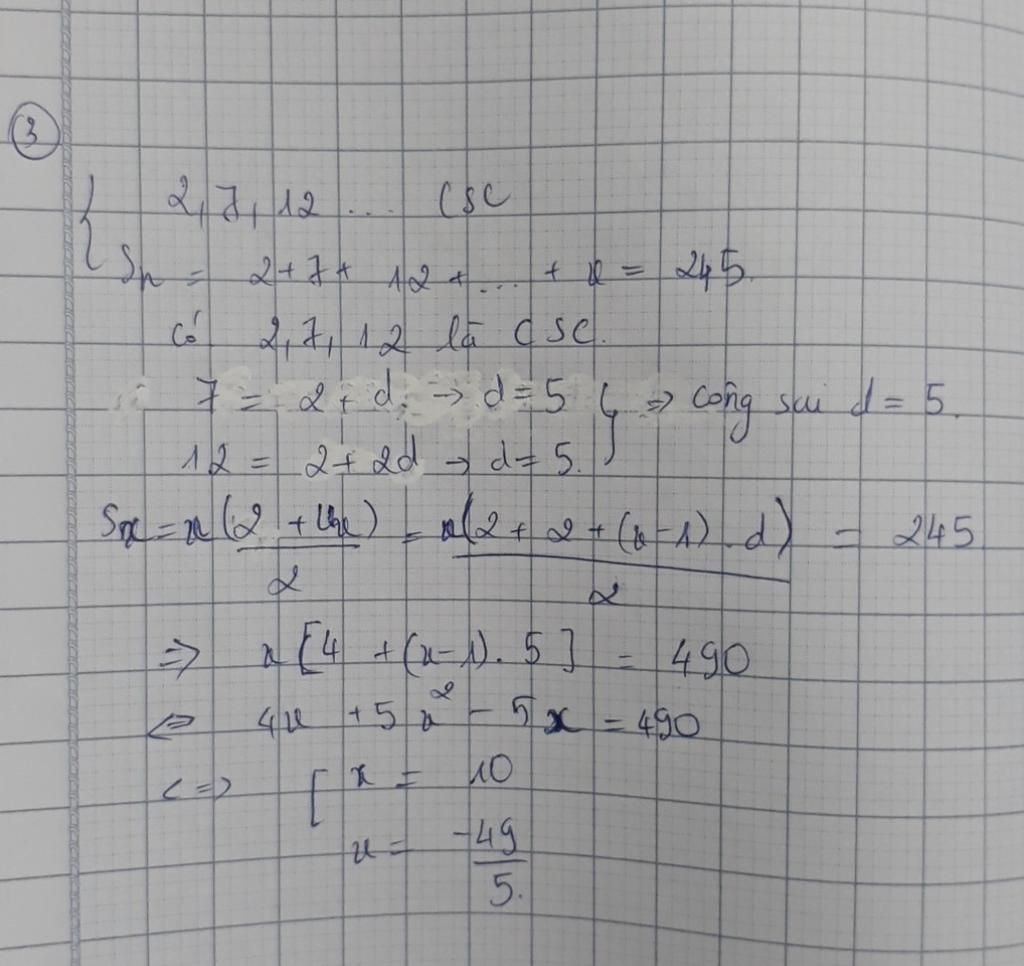 ③
{ 2, 7, 12 .... CSC
Sn = 2 + 7 + 12 + ... + x = 245.
Có 2, 7, 12 là CSC.
7 = 2 + d. → d = 5 } ⇒ công sai d = 5.
12 = 2 + 2d → d = 5.
Sx = x(2 + Ux)/2 = x(2 + 2 + (x-1).d)/2 = 245
⇒ x [4 + (x-1). 5] = 490
⇔ 4x + 5x² - 5x = 490
<=> [ x = 10
x = -49/5.